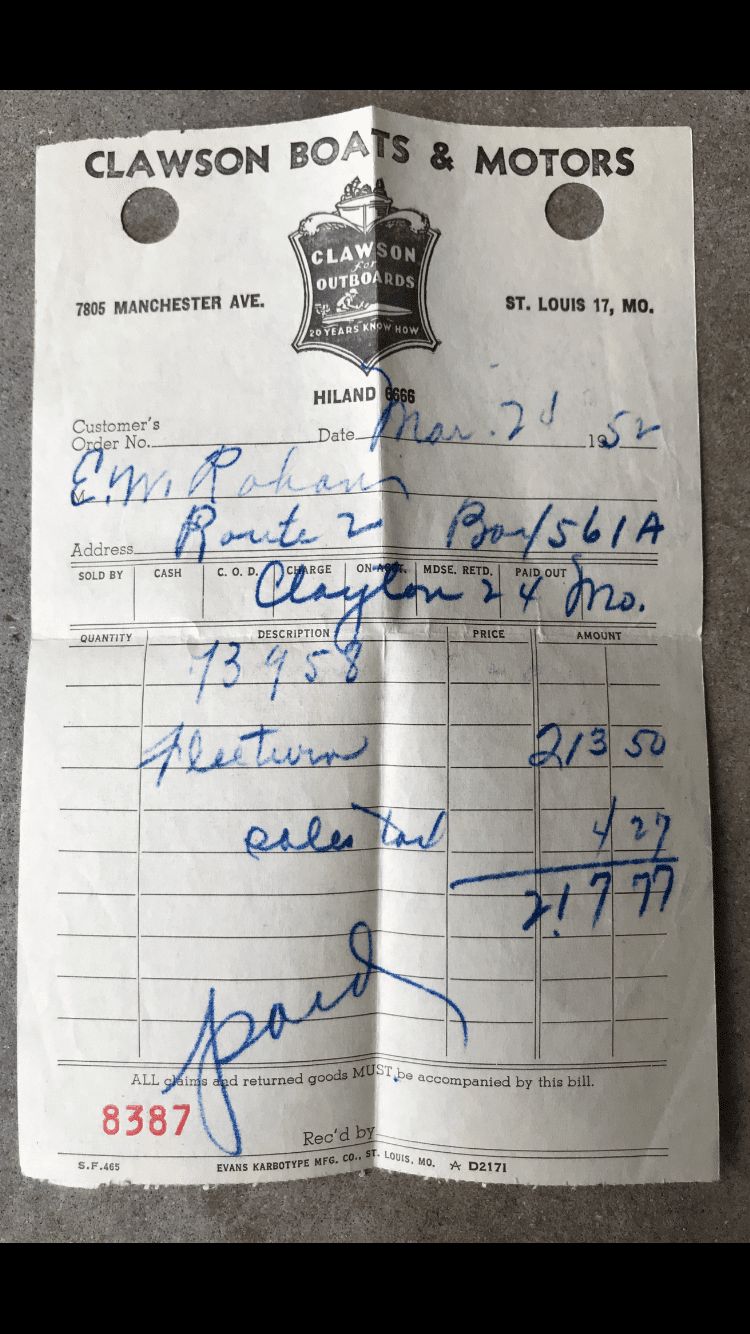 CLAWSON BOATS & MOTORS
CLAWSON
for
OUTBOARDS
20 YEARS KNOW HOW
7805 MANCHESTER AVE.
ST. LOUIS 17, MO.
HILAND 6666
Customer's
Order No. Date Mar. 2d 1952
M E.W. Rohan
Address Route 2 Box 1561A
SOLD BY CASH C. O. D. CHARGE ON ACCT. MDSE. RETD. PAID OUT
Clayton 24 Mo.
QUANTITY DESCRIPTION PRICE AMOUNT
73958
Fleetwin 213 50
sales tax 4 27
217 77
paid
ALL claims and returned goods MUST be accompanied by this bill.
8387
Rec'd by
S.F.465 EVANS KARBOTYPE MFG. CO., ST. LOUIS, MO. A D2171